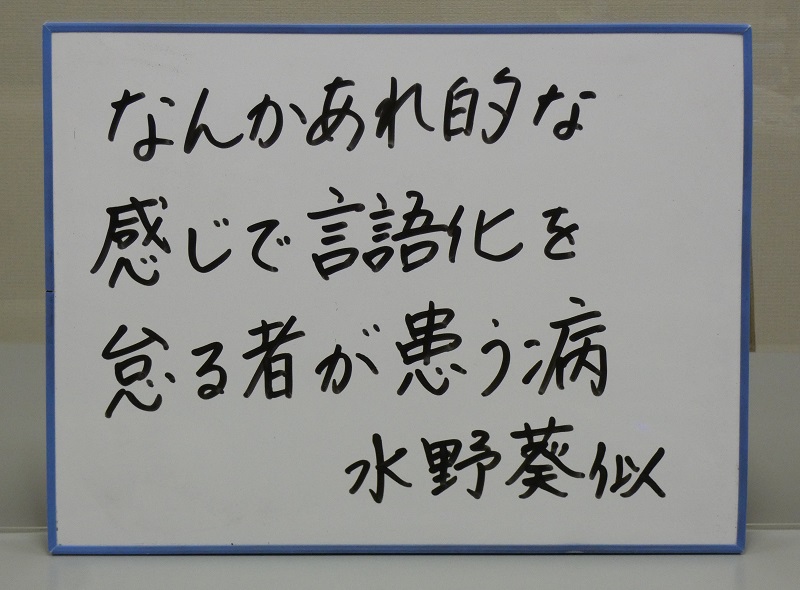 なんかあれ的な
感じで言語化を
怠る者が患う病
水野葵似